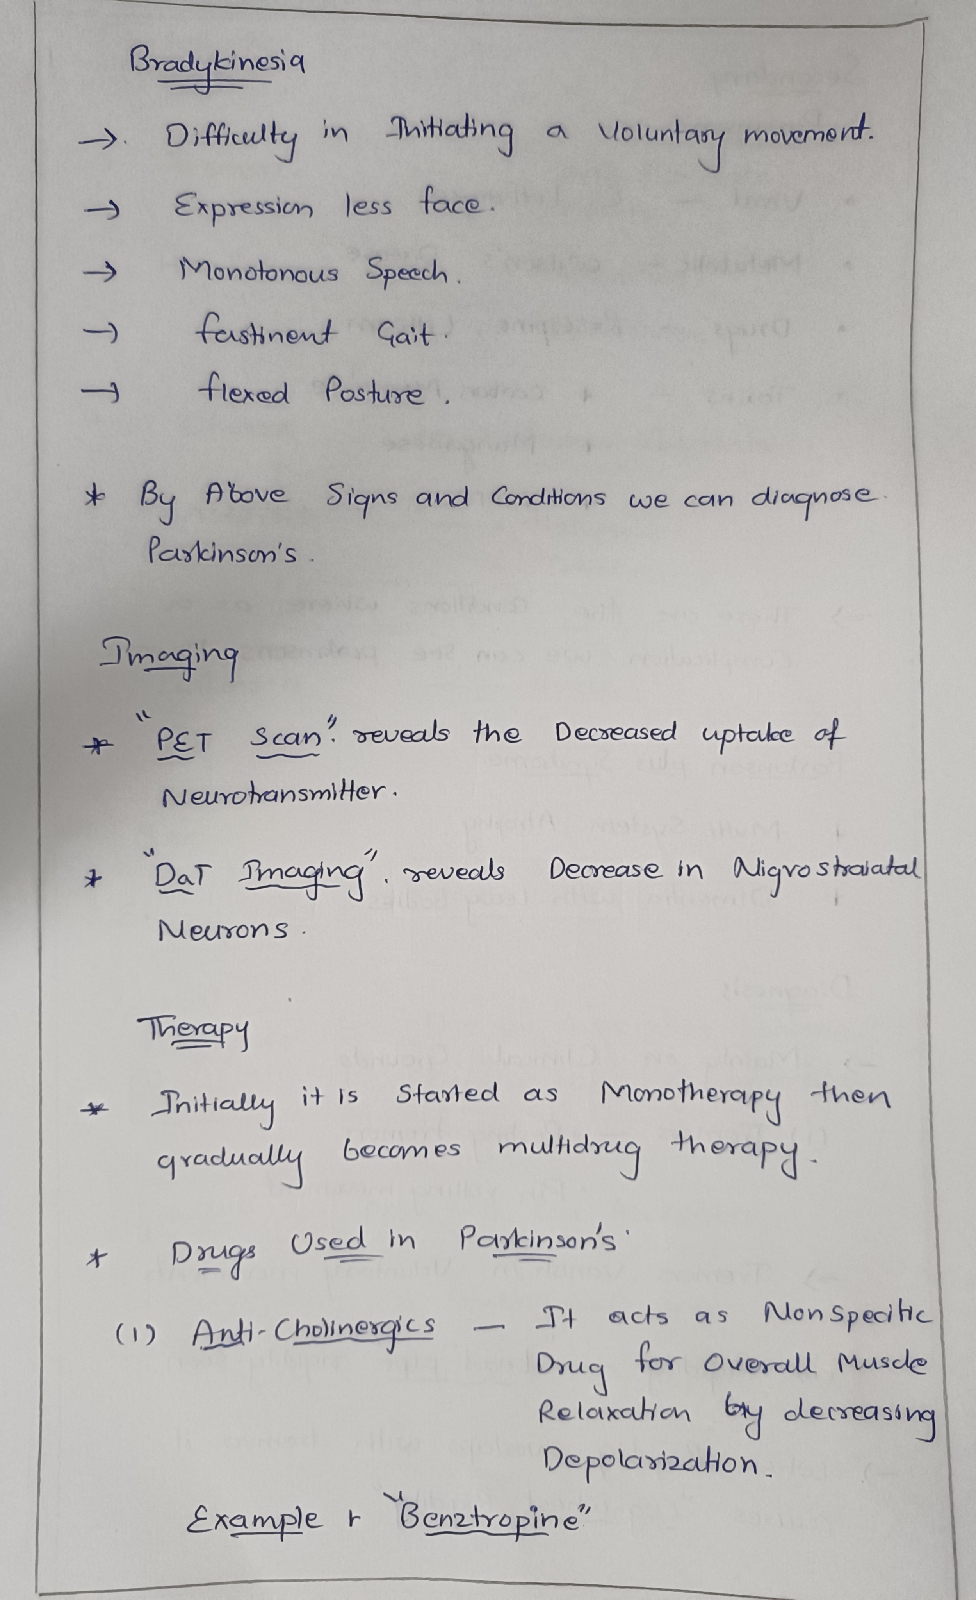 Bradykinesia
→. Difficulty in Initiating a Voluntary movement.
→ Expression less face.
→ Monotonous Speech.
→ fastinent Gait.
→ flexed Posture.
* By Above Signs and Conditions we can diagnose
Parkinson's.
Imaging
* "PET Scan". reveals the Decreased uptake of
Neurotransmitter.
* "DaT Imaging". reveals Decrease in Nigrostraiatal
Neurons.
Therapy
* Initially it is Started as Monotherapy then
gradually becomes multidrug therapy.
* Drugs Used in Parkinson's
(1) Anti-Cholinergics - It acts as Nonspecific
Drug for Overall Muscle
Relaxation by decreasing
Depolarization.
Example "Benztropine"